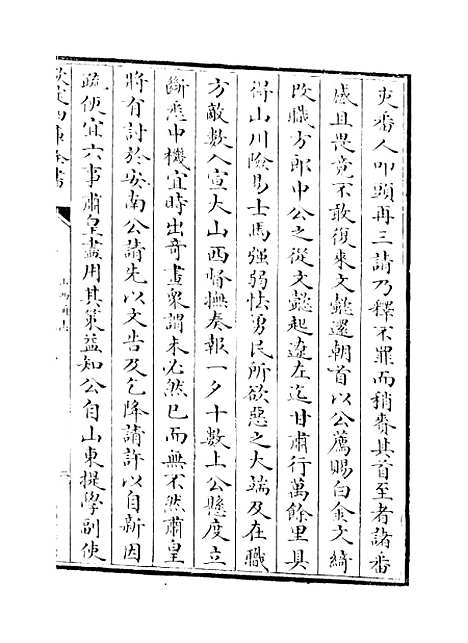 吏番人叩頭再三請乃釋不罪而稍賚其首至者諸番
感且畏竟不敢復來文懿還朝首以公薦賜白金文綺
改職方郎中公之從文懿起遼左迄甘肅行萬餘里具
得山川險易士馬强弱怯勇民所欲惡之大端及在職
方敵數入宣大山西督撫奏報一夕十數上公懸度立
斷悉中機宜時出奇畫衆謂未必然已而無不然肅皇
將有討於安南公請先以文告及乞降請許以自新因
疏便宜六事肅皇盡用其策益知公自山東提學副使
欽定四庫全書